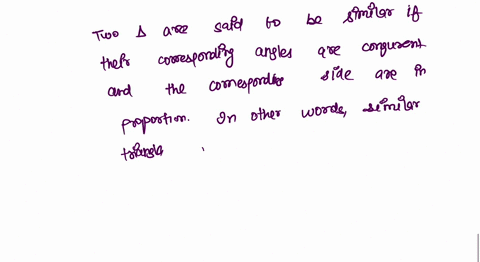 Two Δ are said to be similar if
their corresponding angles are congruent
and the corresponding side are in
proportion. In other words, similar
triangle